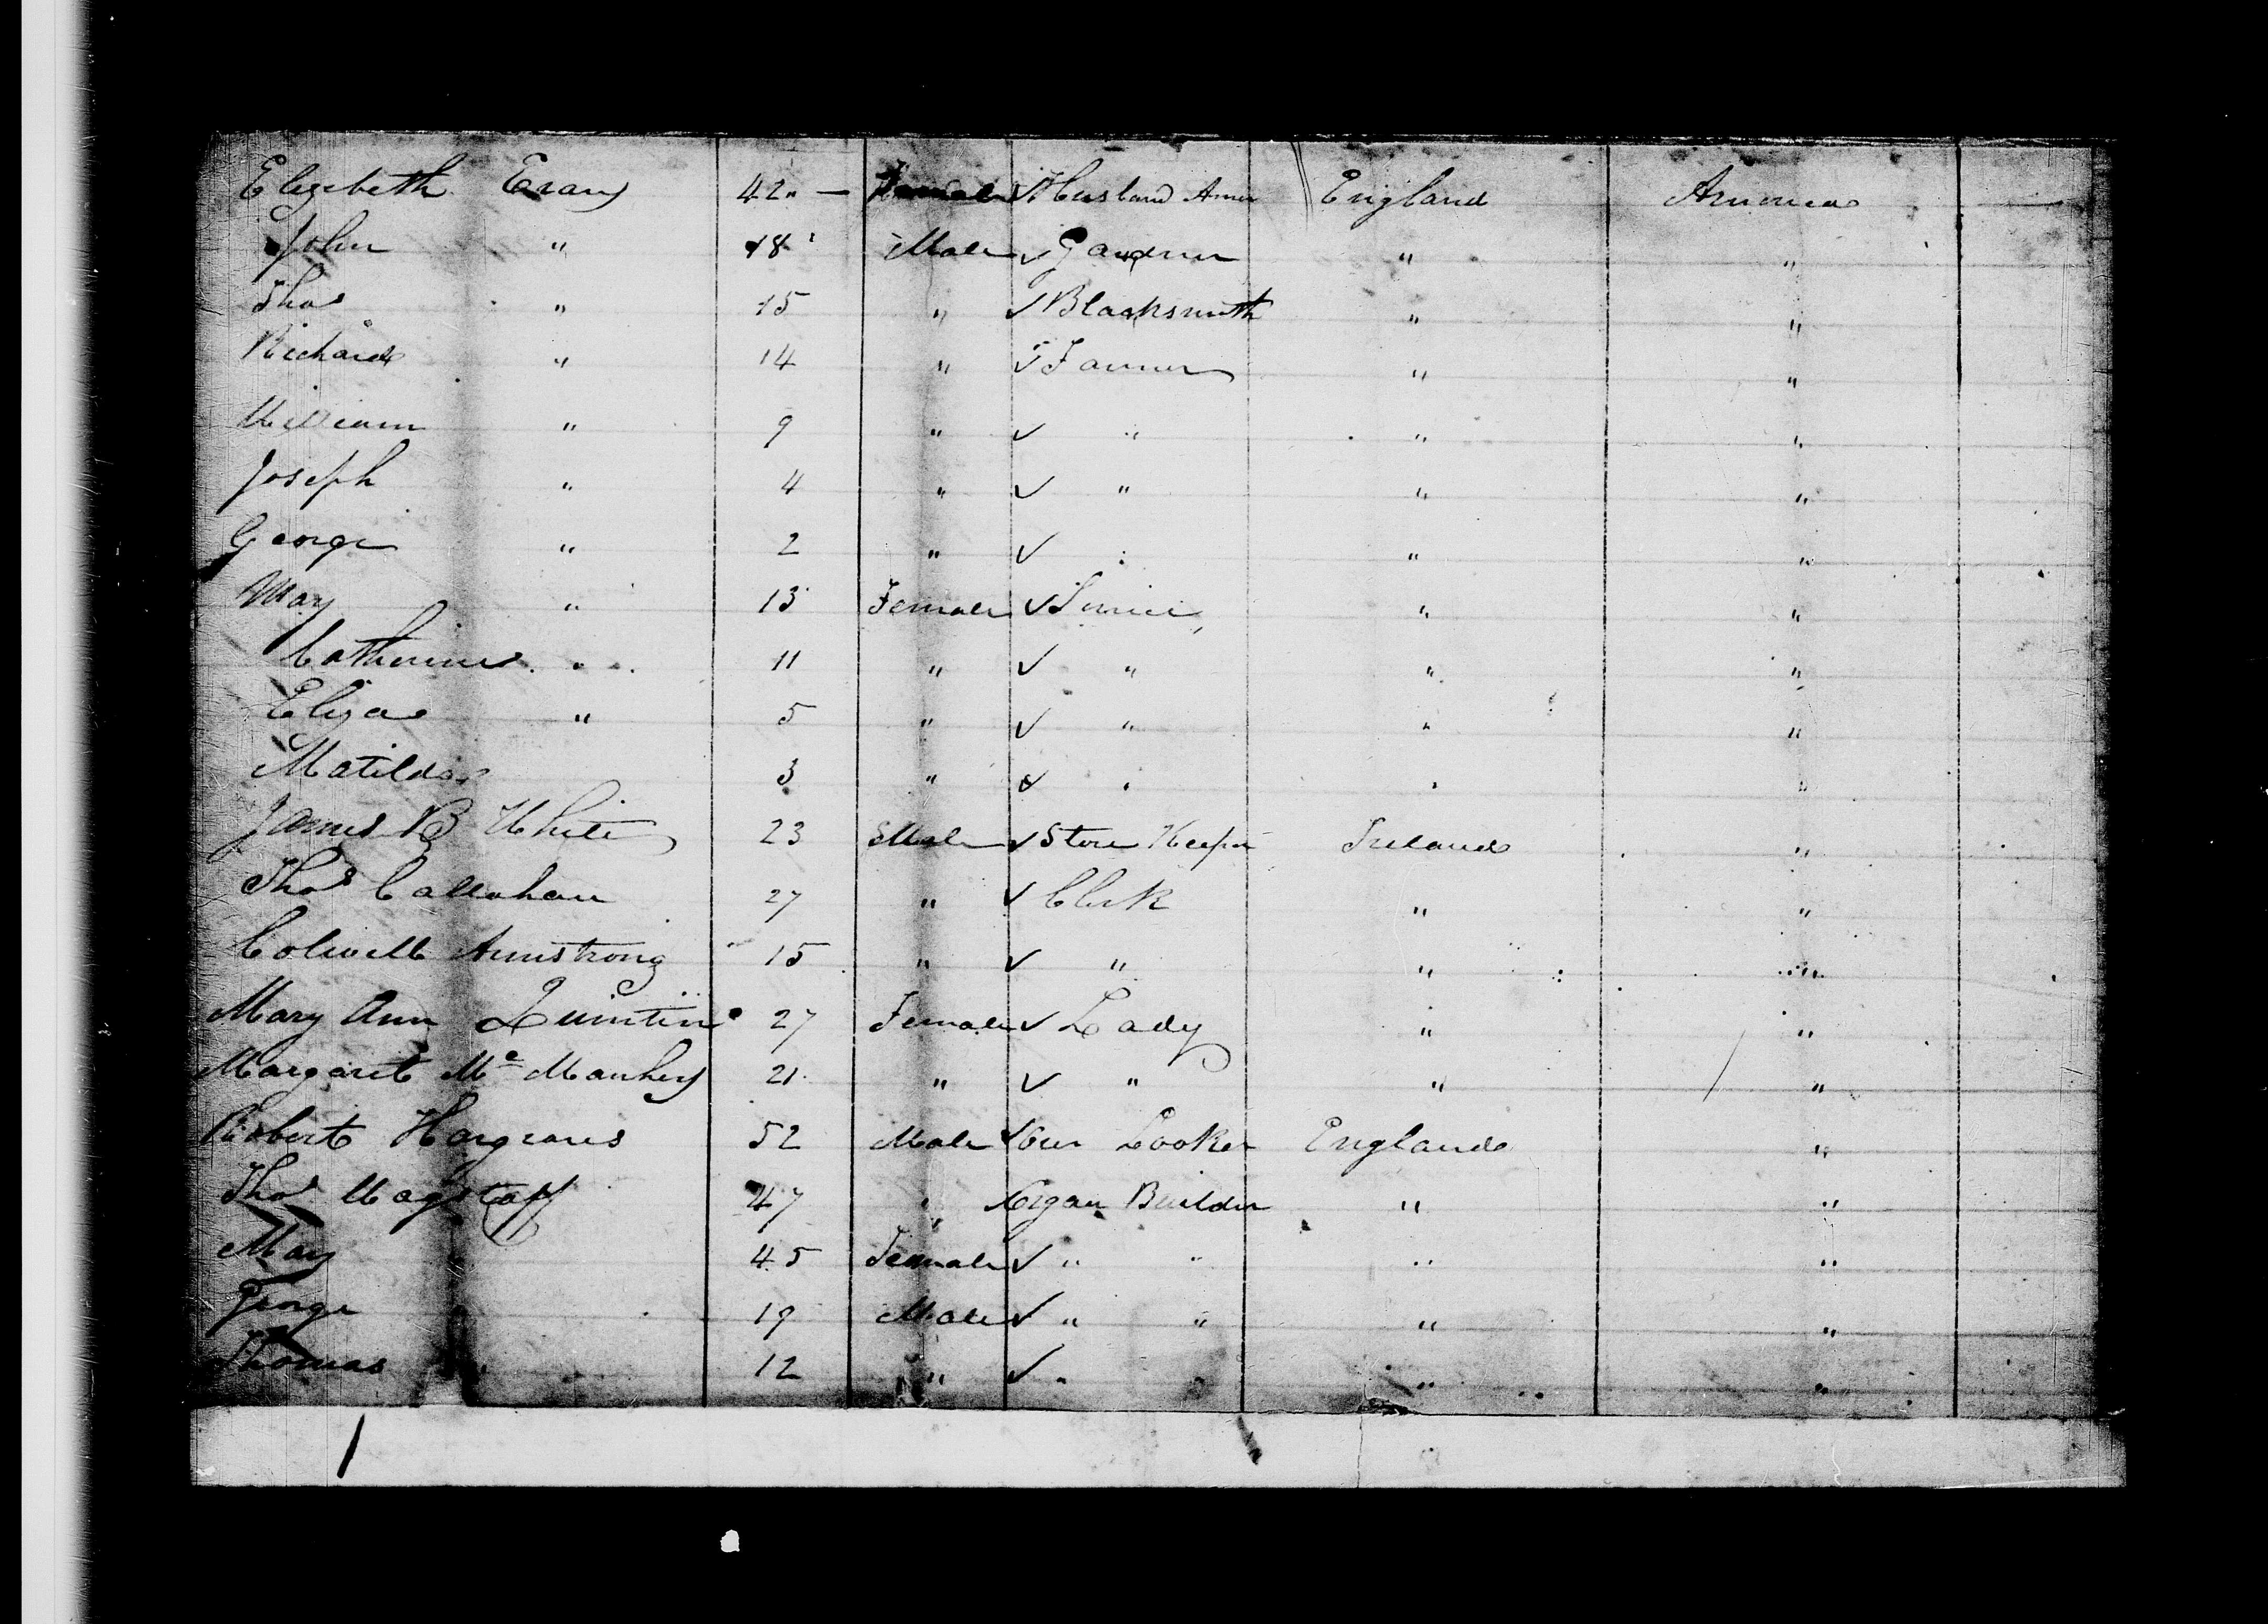 Elizabeth Evans 42 " — Female ✓ Husband Amer England America —
John " 18 Male ✓ Gardner " "
Thos " 15 " ✓ Blacksmith " "
Richard " 14 " ✓ Farmer " "
William " 9 " ✓ " " "
Joseph " 4 " ✓ " " "
George " 2 " ✓ " " "
Mary " 13 Female ✓ " "
Catherine " 11 " ✓ " " "
Eliza " 5 " ✓ " " "
Matilda 3 " ✓ " " "
James B White 23 Male ✓ Store Keeper Ireland "
Thos Callahan 27 " ✓ Clerk " "
Colwell Armstrong 15 " ✓ " " "
Mary Ann Quintin 27 Female ✓ Lady " "
Margaret Mc 21 " ✓ " " "
Robert Hargraves 52 Male ✓ Over Looker England "
Thos Wagstaff 47 " ✓ Organ Builder " "
Mary 45 Female ✓ " " " "
George 19 Male ✓ " " " "
Thomas 12 " ✓ " " " "